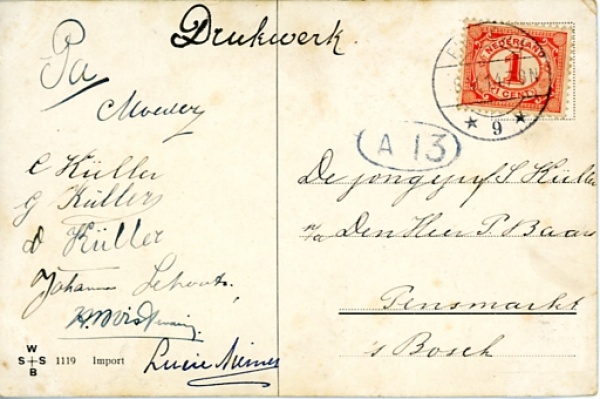 Drukwerk.
Pa
Moeder
C Küller
G Küller
D Küller
Johanna
Lucie
W
S S
B
1119 Import
NEDERLAND
1
CENT
9
A 13
De jongejuf S Küller
p/a Den Heer P. Baars
Pensmarkt
's Bosch